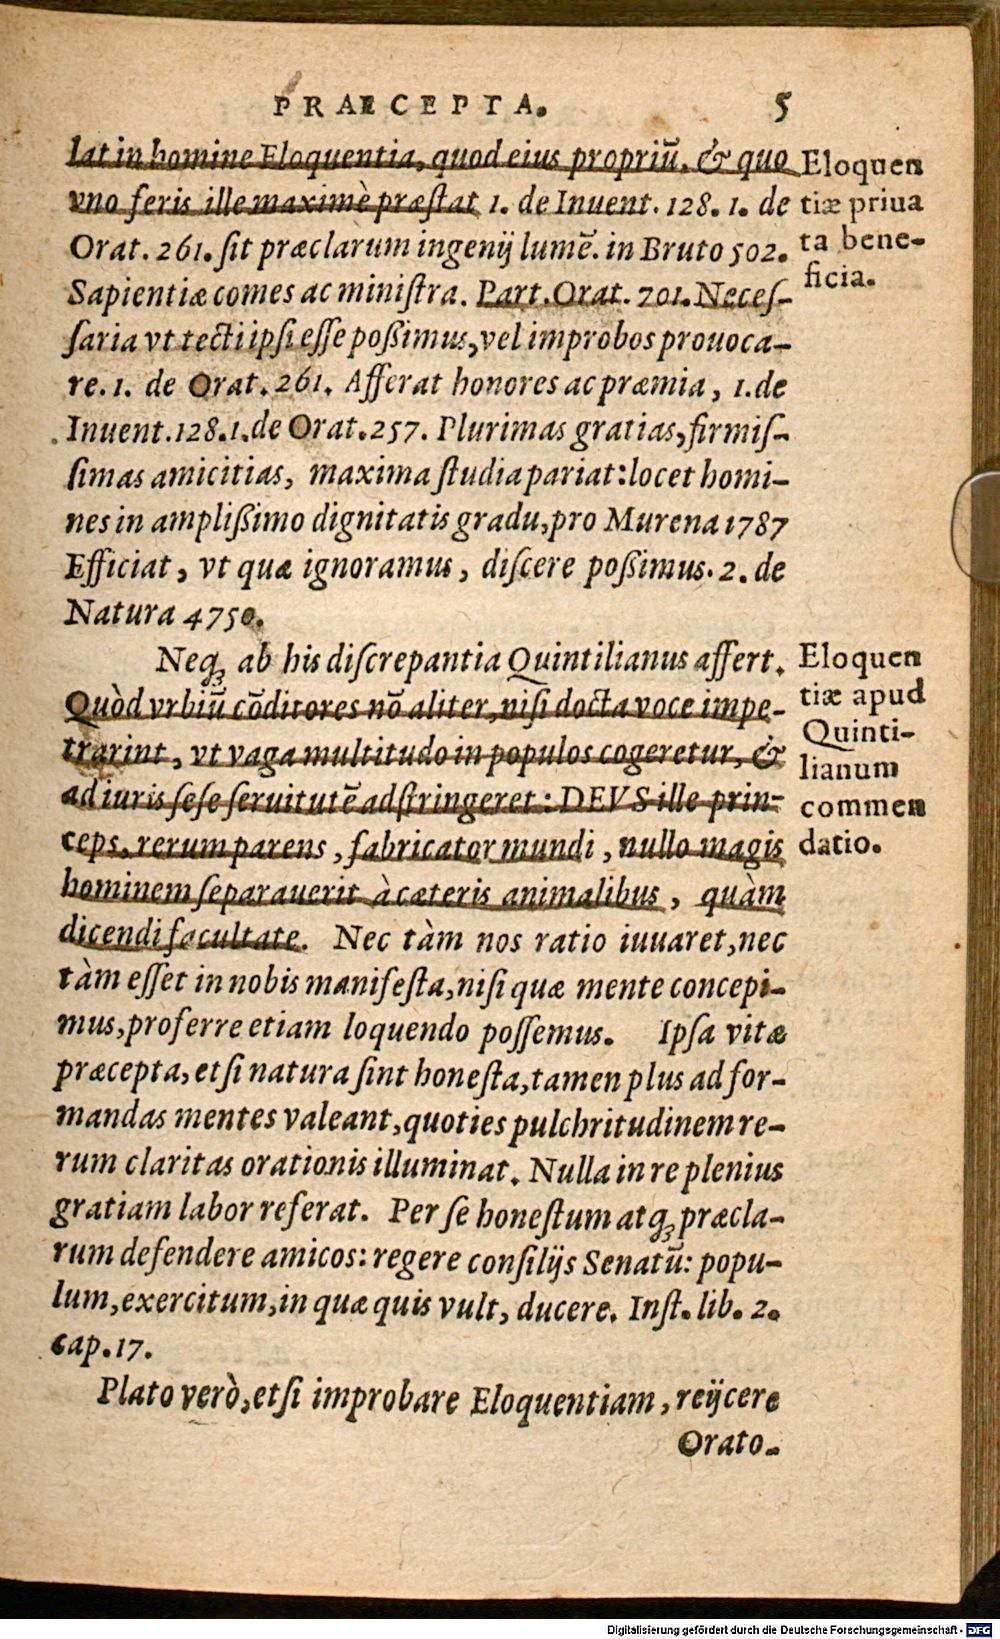 PRAECEPTA. 5
lat in homine Eloquentia, quod eius propriū, & quo
vno feris ille maximè præstat 1. de Inuent. 128. 1. de
Orat. 261. sit præclarum ingenij lumē. in Bruto 502.
Sapientiæ comes ac ministra. Part. Orat. 701. Neces-
saria vt tecti ipsi esse poßimus, vel improbos prouoca-
re. 1. de Orat. 261. Afferat honores ac præmia, 1. de
Inuent. 128. 1. de Orat. 257. Plurimas gratias, firmis-
simas amicitias, maxima studia pariat: locet homi-
nes in amplißimo dignitatis gradu, pro Murena 1787
Efficiat, vt quæ ignoramus, discere poßimus. 2. de
Natura 4750.
Eloquen
tiæ priua
ta bene-
ficia.
Neq; ab his discrepantia Quintilianus affert.
Quòd vrbiū cōditores nō aliter, nisi docta voce impe-
trarint, vt vaga multitudo in populos cogeretur, &
ad iuris sese seruitutē adstringeret: DEVS ille prin-
ceps, rerum parens, fabricator mundi, nullo magis
hominem separauerit à cæteris animalibus, quàm
dicendi facultate. Nec tàm nos ratio iuuaret, nec
tàm esset in nobis manifesta, nisi quæ mente concepi-
mus, proferre etiam loquendo possemus. Ipsa vitæ
præcepta, etsi natura sint honesta, tamen plus ad for-
mandas mentes valeant, quoties pulchritudinem re-
rum claritas orationis illuminat. Nulla in re plenius
gratiam labor referat. Per se honestum atq; præcla-
rum defendere amicos: regere consilijs Senatū: popu-
lum, exercitum, in quæ quis vult, ducere. Inst. lib. 2.
cap. 17.
Eloquen
tiæ apud
Quinti-
lianum
commen
datio.
Plato verò, etsi improbare Eloquentiam, reijcere
Orato-
Digitalisierung gefördert durch die Deutsche Forschungsgemeinschaft - DFG